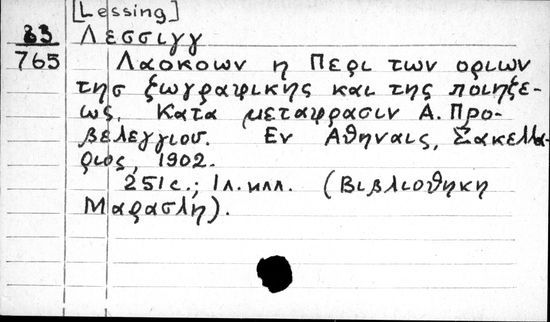 [Lessing]
83
765
Λεσσιγγ
Λαοκοων η Περι των οριων
της ζωγραφικης και της ποιησε-
ως. Κατα μεταφρασιν Α. Προ-
βελεγγιου. Εν Αθηναις, Σακελλα-
ριος, 1902.
251с.; 1л.илл. (Βιβλιοθηκη
Μαρασλη).